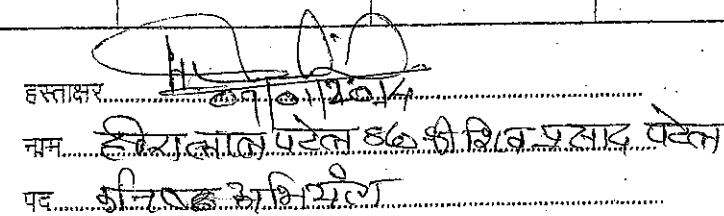 हस्ताक्षर 09/01/2014
नाम हीरालाल पटेल S/o श्री शिव प्रसाद पटेल
पद कनिष्ठ अभियंता